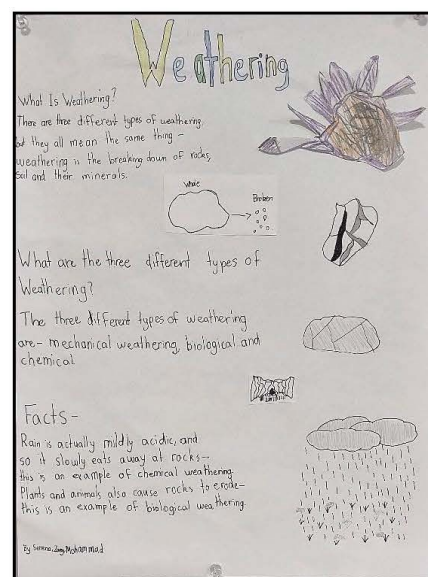 Weathering
What Is Weathering?
There are three different types of weathering,
but they all mean the same thing -
weathering is the breaking down of rocks,
soil and their minerals.
whole
Broken
What are the three different types of
Weathering?
The three different types of weathering
are- mechanical weathering, biological and
chemical
Facts-
Rain is actually mildly acidic, and
so it slowly eats away at rocks-
this is an example of chemical weathering.
Plants and animals also cause rocks to erode-
this is an example of biological weathering.
By Mohammad